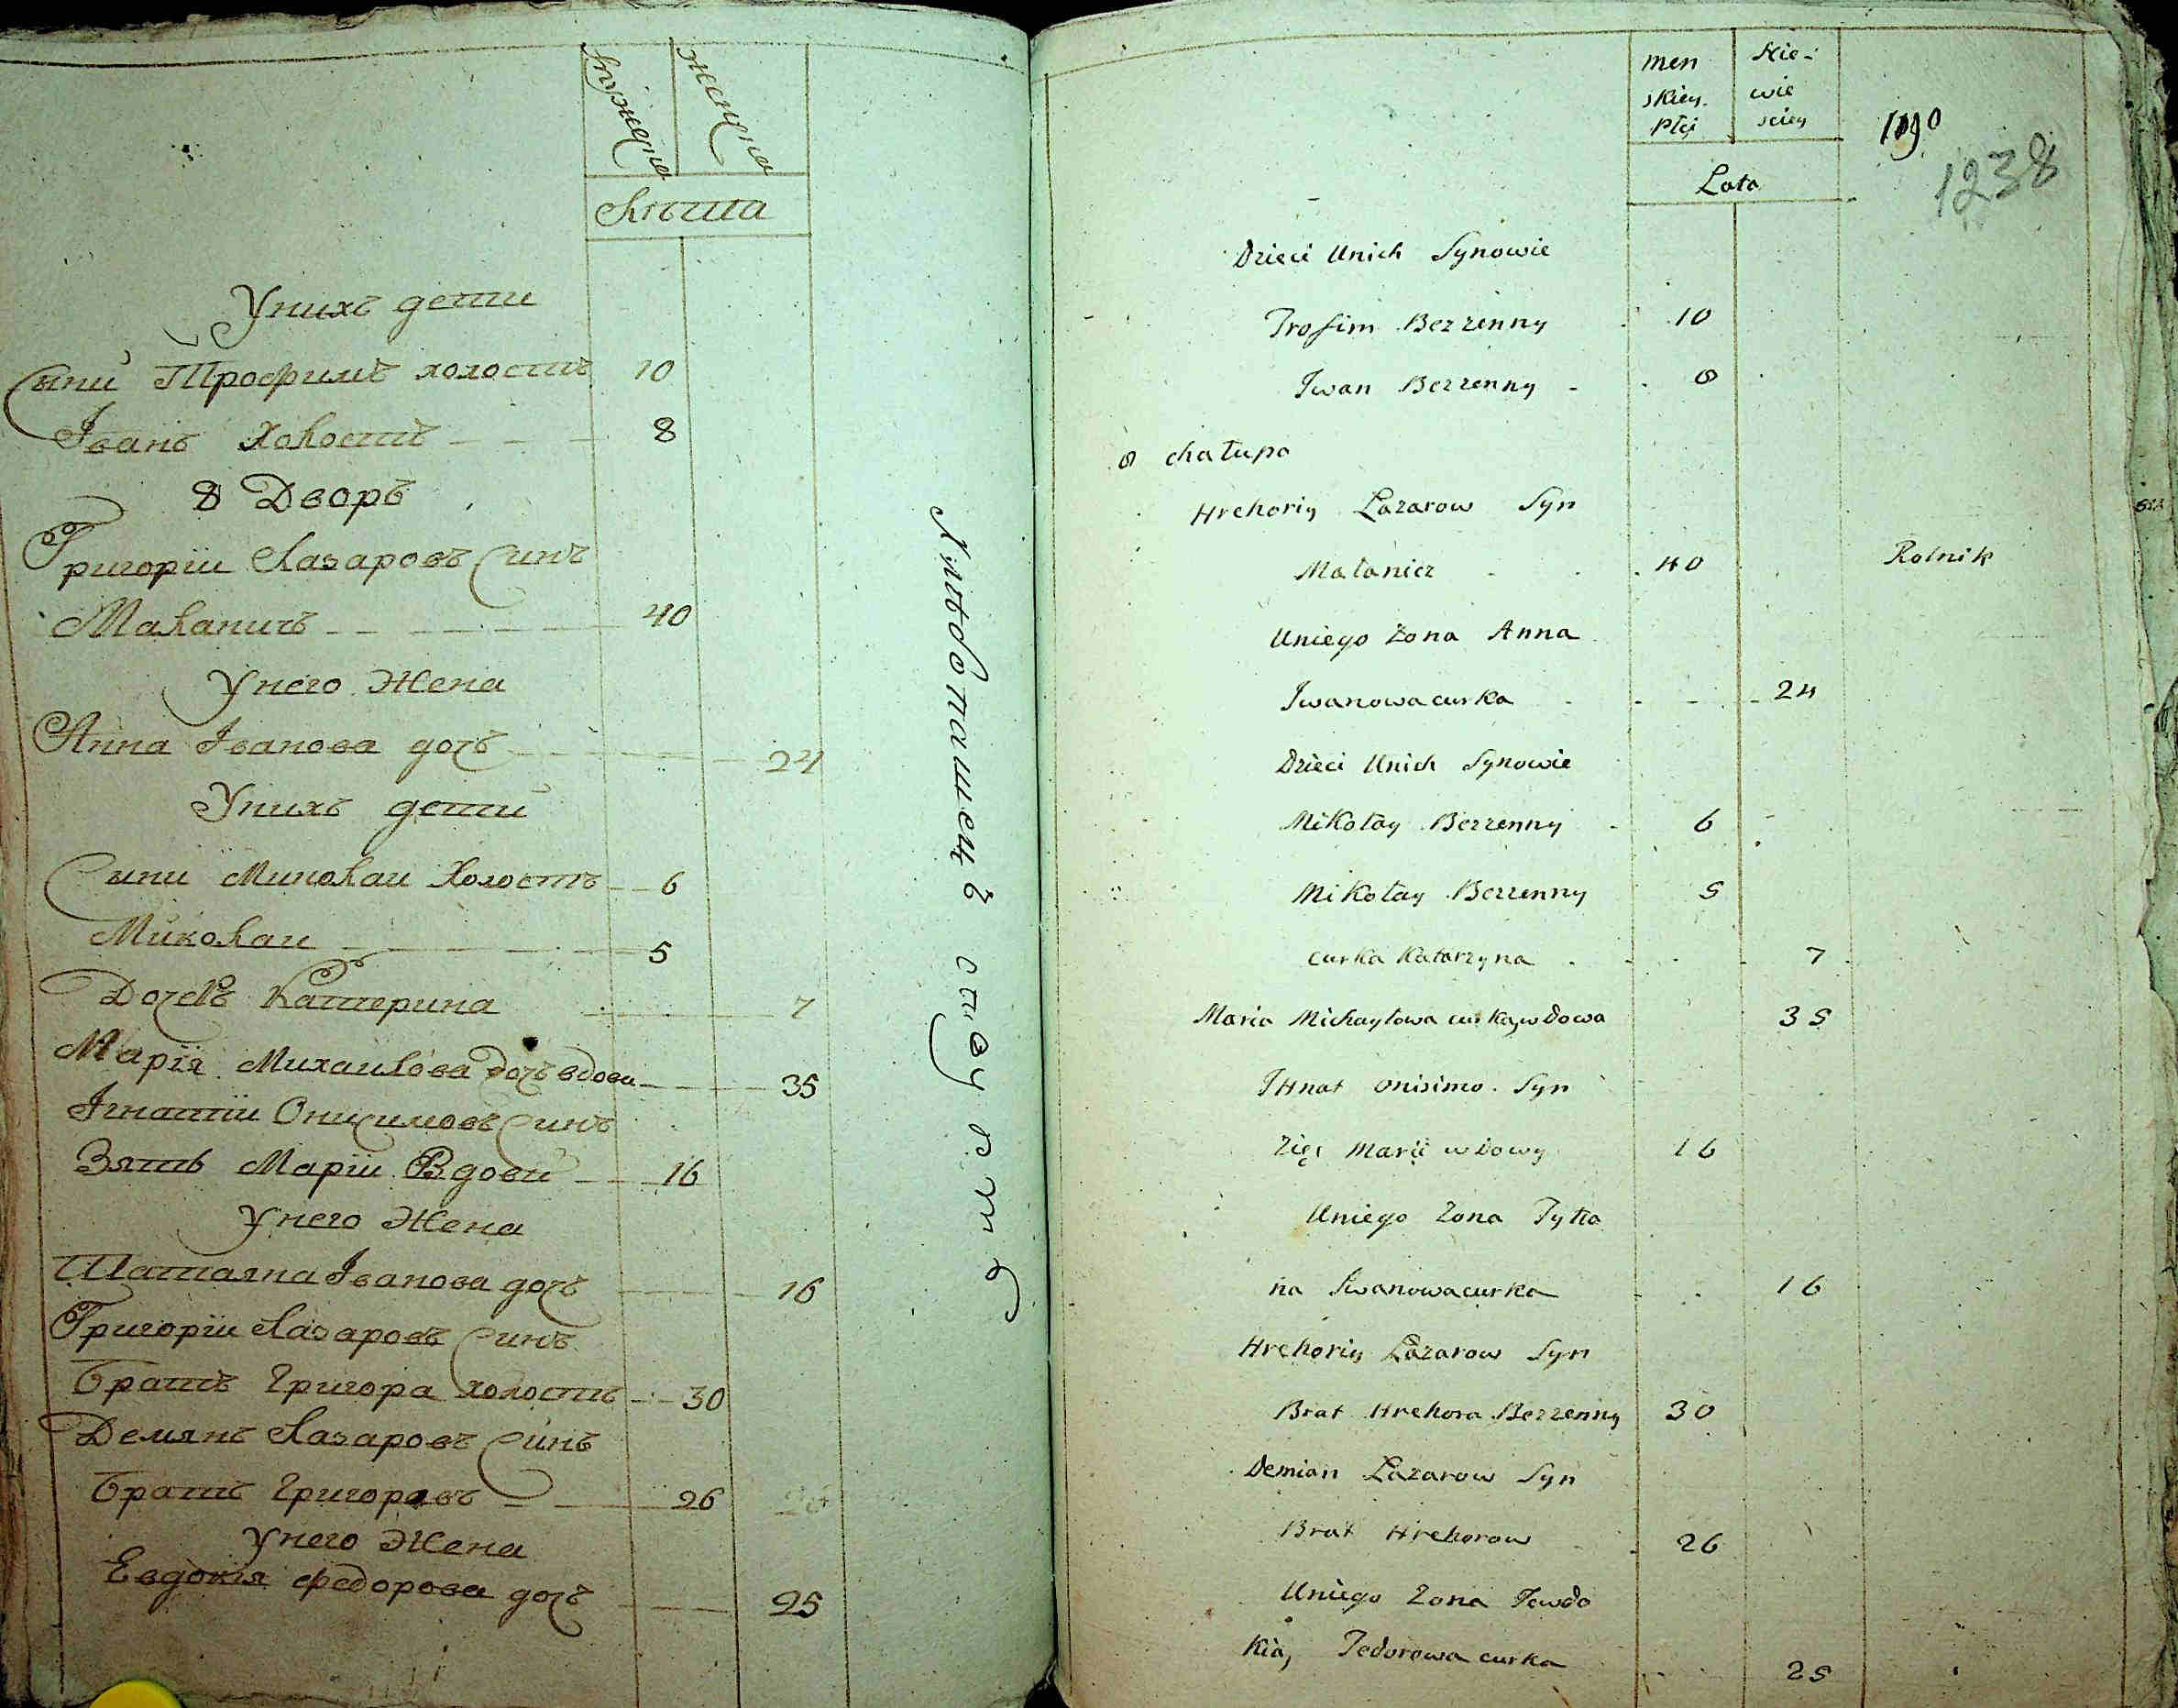 мужеска
женска
Лѣта
Унихъ дети
Сыни Трофимъ холостъ 10
Іванъ Холостъ 8
8 Дворъ
Григоріи Лазаровъ Синъ
Маланичъ 40
Унего Жена
Анна Іванова дочъ 24
Унихъ дети
Сыни Миколаи Холостъ 6
Миколаи 5
Дочеръ Катерина 7
Марія Михаилова Дочъ вдова 35
Ігнатіи Онисимовъ Синъ
Зять Маріи Вдови 16
Унего Жена
Татіяна Іванова дочъ 16
Григоріи Лазаровъ Синъ
Братъ Григора холостъ 30
Демянъ Лазаровъ Синъ
Братъ Григоровъ 26
Унего Жена
Евдокія Федорова дочъ 25
Хлѣбопашецъ
men Nie-
skiey wie
Płci sciey
1190
1238
Lata
Dzieci Unich Synowie
Trofim Bezzenny 10
Iwan Bezzenny 8
8 chałupa
Hrehoriy Łazarow Syn
Małanicz 40 Rolnik
Uniego Zona Anna
Iwanowa curka 24
Dzieci Unich Synowie
Mikołay Bezzenny 6
Mikołay Bezzenny 5
curka Katarzyna 7
Maria Michayłowa curka, wdowa 35
IHnat onisimo. Syn
Zięc Marii wdowy 16
Uniego Zona Tytia
na Iwanowa curka 16
Hrehoriy Łazarow Syn
Brat Hrehora Bezzenny 30
Demian Łazarow Syn
Brat Hrehorow 26
Uniego Zona Jewdo
Kia, Fedorowa curka 25